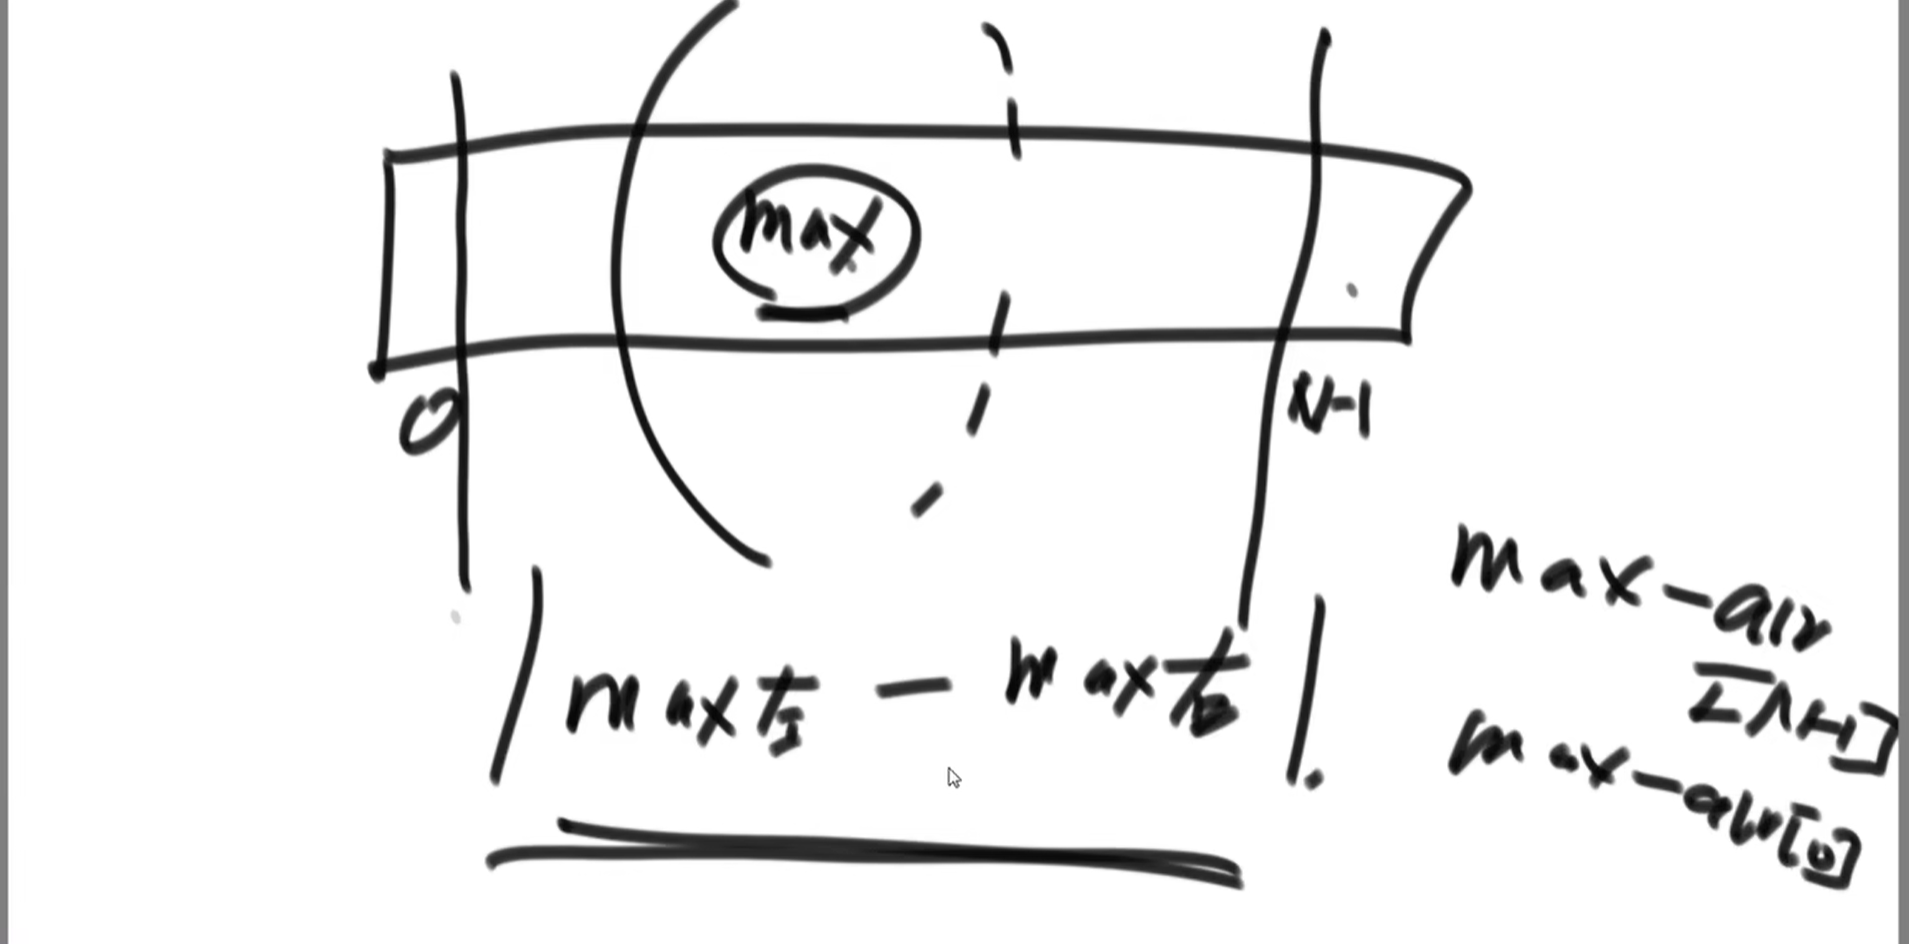 max
0
N-1
|max左 - max右|.
max-arr[N-1]
max-arr[0]